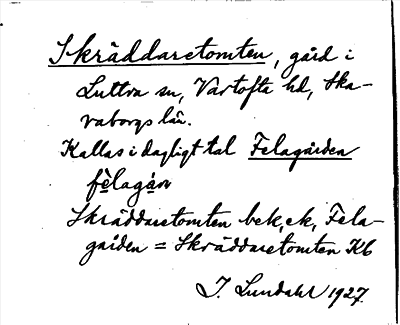 Skräddaretomten, gård i
Luttra sn, Vartofta hd, Ska-
raborgs län.
Kallas i dagligt tal Felagården
fè̱lagá̱ṉ
Skräddaretomten bek, ek, Fela-
gården = Skräddaretomten Kb
I. Lundahl 1927.